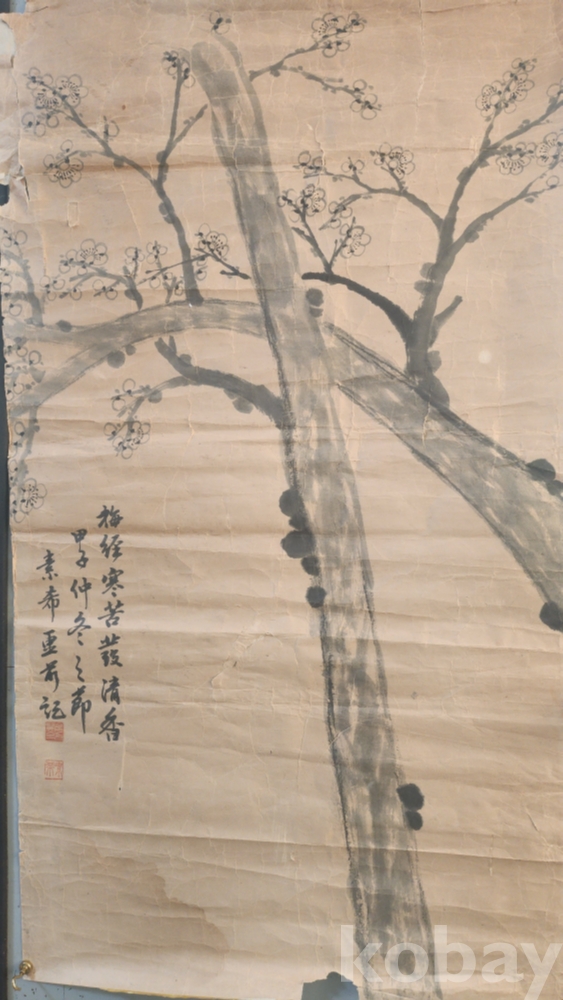 梅經寒苦發清香
甲子仲冬之節
素希
kobay